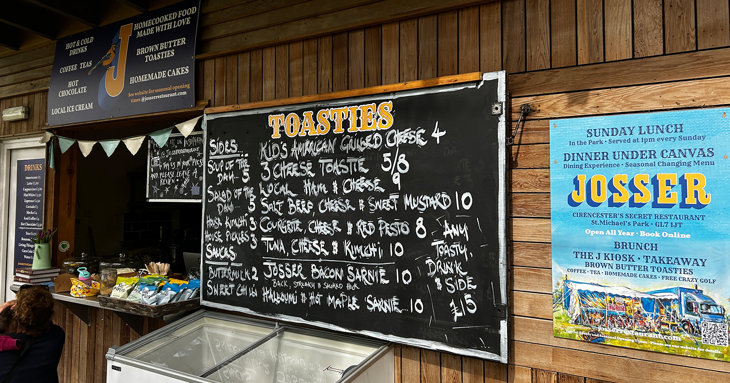 HOT & COLD
DRINKS
COFFEE TEAS
HOT
CHOCOLATE
LOCAL ICE CREAM
J
HOMECOOKED FOOD
MADE WITH LOVE
BROWN BUTTER
TOASTIES
HOMEMADE CAKES
See website for seasonal opening
times @josserrestaurant.com
DRINKS
TOASTIES
SIDES..
SOUP OF THE
DAY 5
SALAD OF THE
DAY 5
HOUSE KIMCHI 3
HOUSE PICKLES 3
SAUCES
BUTTERMILK 2
SWEET CHILLI
KID'S AMERICAN GRILLED CHEESE 4
3 CHEESE TOASTIE 5/8
LOCAL HAM & CHEESE 9
SALT BEEF CHEESE & SWEET MUSTARD 10
COURGETTE, CHEESE & RED PESTO 8
TUNA, CHEESE & KIMCHI 10
JOSSER BACON SARNIE 10
BACK, STREAKY & SMOKED
HALLOUMI & HOT MAPLE SARNIE 10
ANY
TOASTY,
DRINK
& SIDE
£15
SUNDAY LUNCH
In the Park • Served at 1pm every Sunday
DINNER UNDER CANVAS
Dining Experience • Seasonal Changing Menu
JOSSER
CIRENCESTER'S SECRET RESTAURANT
St.Michael's Park • GL7 1JT
Open All Year • Book Online
BRUNCH
THE J KIOSK • TAKEAWAY
BROWN BUTTER TOASTIES
COFFEE • TEA • HOMEMADE CAKES • FREE CRAZY GOLF
josserrestaurant.com